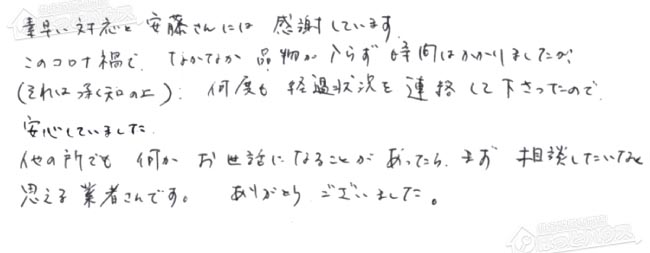 素早い対応と安藤さんには感謝しています。
このコロナ禍で、なかなか品物が入らず時間はかかりましたが、
(それは承知の上)、何度も経過状況を連絡して下さったので、
安心していました。
他の所でも何かお世話になることがあったら、まず相談したいなと
思える業者さんです。 ありがとうございました。